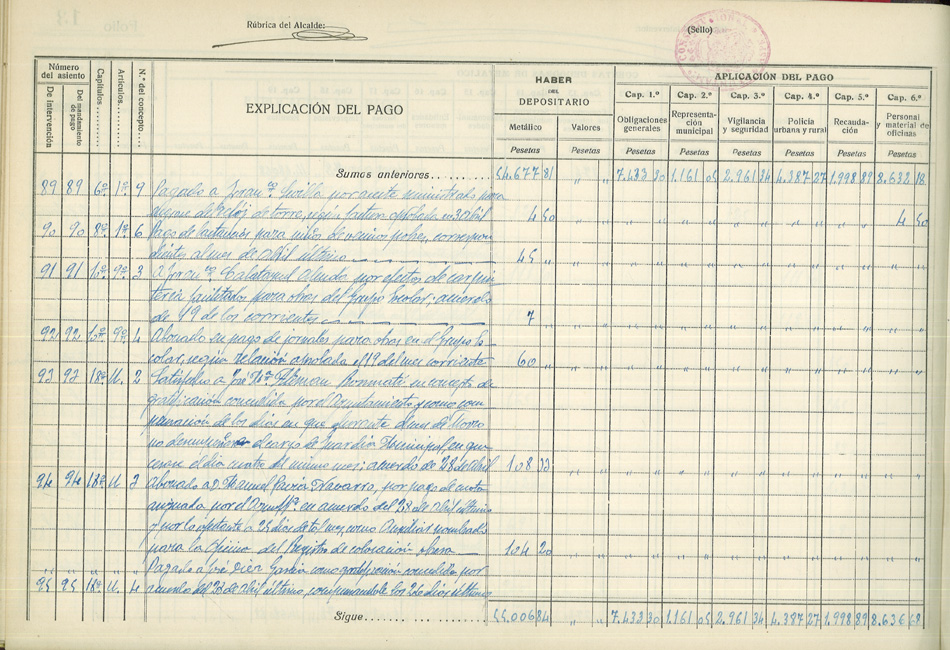 Rúbrica del Alcalde:
(Sello)
Número del asiento
De intervención
Del mandamiento de pago
Capítulos
Artículos
N.º del concepto
EXPLICACIÓN DEL PAGO
HABER DEL DEPOSITARIO
Metálico
Valores
Pesetas Pesetas
APLICACIÓN DEL PAGO
Cap. 1.º Cap. 2.º Cap. 3.º Cap. 4.º Cap. 5.º Cap. 6.º
Obligaciones generales
Representación municipal
Vigilancia y seguridad
Policía urbana y rural
Recaudación
Personal y material de oficinas
Pesetas Pesetas Pesetas Pesetas Pesetas Pesetas
Sumas anteriores 54.677 81 " " 7.433 30 1.161 05 2.961 34 4.387 27 1.998 89 8.632 18
89 89 6º 1º 9 Pagado a Sevilla por aceite suministrado para
de torre, según factura aprobada en 30 abril 4 50 4 50
90 90 8º 1º 6 Pago de lactancias para niños de vecinos pobres, correspon
dientes al mes de abril último 45 "
91 91 9º 3 A Calatayud por efectos de carpin
tería facilitados para obras del Grupo Escolar; acuerdo
de 19 de los corrientes 7
92 92 9º 4 Abonado en pago de jornales para obras en el Grupo Es
colar, según relación aprobada el 19 del mes corriente 60 "
93 93 18º U. 2 Satisfecho a José Mª Alemán en concepto de
gratificación concedida por el Ayuntamiento y como com
pensación de los días en que durante el mes de
no desempeñó el cargo de Guardia Municipal, en que
cesó el día cuatro del mismo mes; acuerdo de 28 de abril 108 33
94 94 18º U. 3 Abonado a D. Manuel García Navarro, por pago de cuota
asignada por el en acuerdo del 28 de abril último
y por lo referente a 25 días de tal mes, como Auxiliar nombrado
para la Oficina del Registro de colocación obrera 104 20
Pagado a José García como gratificación concedida por
95 95 18º U. 4 acuerdo del 28 de abril último, los 26 días últimos
Sigue 55.006 84 " " 7.433 30 1.161 05 2.961 34 4.387 27 1.998 89 8.636 68